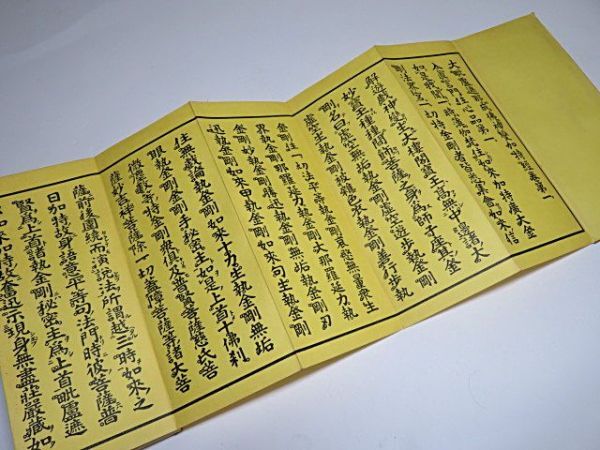 大毗盧遮那成佛神變加持經卷第一
入真言門住心品第一
如是我聞一時薄伽梵住如來加持廣大金
剛法界宮一切持金剛者皆悉集會如來信
解遊戲神變生大樓閣寶王高無中邊諸大
妙寶王種種間飾菩薩之身爲師子座其金
剛名曰虛空無垢執金剛虛空遊步執金剛
虛空生執金剛被雜色衣執金剛善行步執
金剛住一切法平等執金剛哀愍無量衆生
界執金剛那羅延力執金剛大那羅延力執
金剛妙執金剛勝迅執金剛無垢執金剛刃
迅執金剛如來甲執金剛如來句生執金剛
住無戲論執金剛如來十力生執金剛無垢
眼執金剛金剛手秘密主如是上首十佛刹
微塵數等持金剛衆俱及普賢菩薩慈氏菩
薩妙吉祥菩薩除一切蓋障菩薩等諸大菩
薩前後圍繞而演說法所謂越三時如來之
日加持故身語意平等句法門時彼菩薩普
賢爲上首諸執金剛秘密主爲上首毗盧遮
如來加持故奮迅示現身無盡莊嚴藏如